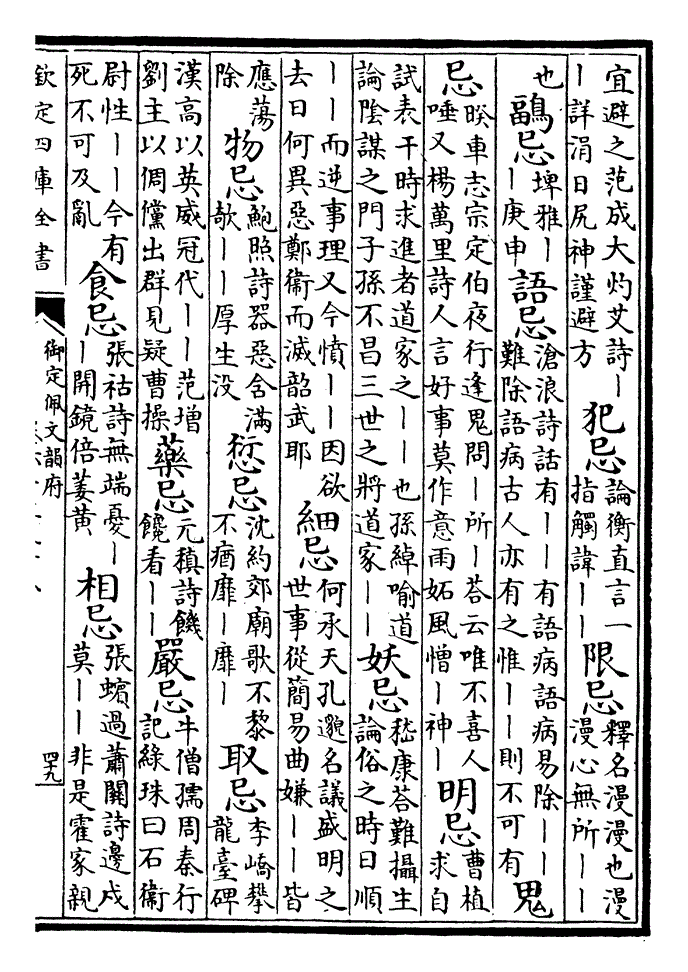 宜避之范成大灼艾詩｜｜詳涓日尻神謹避方犯忌論衡直言一指觸諱｜｜限忌釋名漫漫也漫漫心無所｜｜
也鷊忌埤雅｜｜庚申語忌滄浪詩話有｜｜有語病語病易除｜｜難除語病古人亦有之惟｜｜則不可有鬼
忌睽車志宗定伯夜行逢鬼問｜所｜荅云唯不喜人唾又楊萬里詩人言好事莫作意雨妬風憎｜神｜明忌曹植求自
試表干時求進者道家之｜｜也孫綽喻道論陰謀之門子孫不昌三世之將道家｜｜妖忌嵇康荅難攝生論俗之時日順
｜｜而逆事理又今憤｜｜因欲去日何異惡鄭衛而滅韶武耶細忌何承天孔邈名議盛明之世事從簡易曲嫌｜｜皆
應蕩除物忌鮑照詩器惡含滿欹｜｜厚生没愆忌沈約郊廟歌不黎不瘠靡｜靡｜取忌李嶠攀龍臺碑
漢高以英威冠代｜｜范增劉主以倜儻出群見疑曹操藥忌元稹詩饑饞看｜｜嚴忌牛僧孺周秦行記綠珠曰石衛
尉性｜｜今有死不可及亂食忌張祜詩無端憂｜｜開鏡倍萋黄相忌張蠙過蕭關詩邊戍莫｜｜非是霍家親
欽定四庫全書
御定佩文韻府
四十九